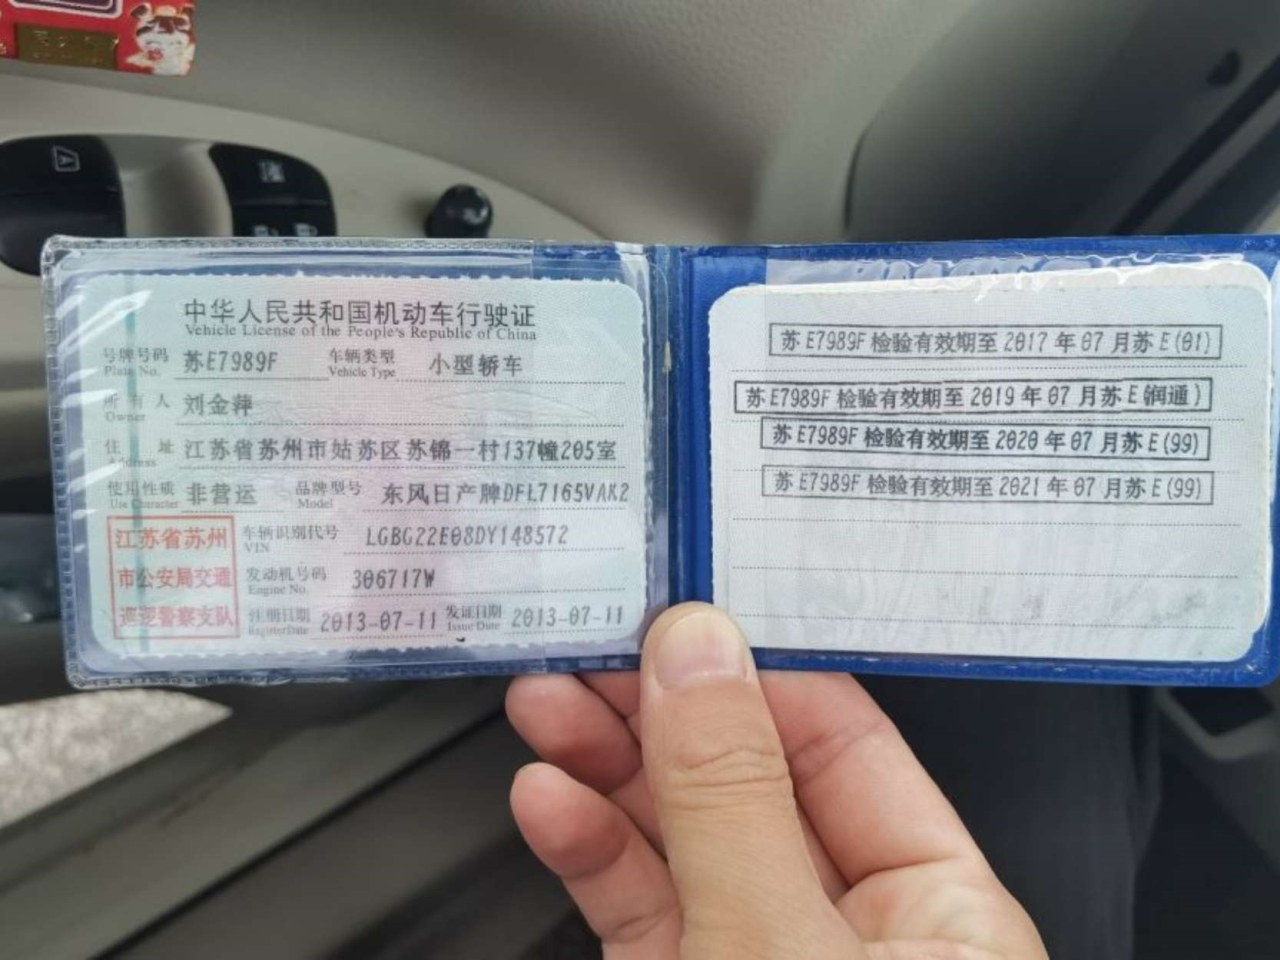 中华人民共和国机动车行驶证
Vehicle License of the People's Republic of China
号牌号码 苏E7989F 车辆类型 小型轿车
Plate No. Vehicle Type
所有人 刘金萍
Owner
住 址 江苏省苏州市姑苏区苏锦一村137幢205室
Address
使用性质 非营运 品牌型号 东风日产牌DFL7165VAK2
Use Character Model
江苏省苏州
市公安局交通
巡逻警察支队
车辆识别代号 LGBG22E08DY148572
VIN
发动机号码 306717W
Engine No.
注册日期 2013-07-11 发证日期 2013-07-11
Register Date Issue Date
苏E7989F 检验有效期至 2017 年 07 月苏E(01)
苏E7989F 检验有效期至 2019 年 07 月苏E(润通)
苏E7989F 检验有效期至 2020 年 07 月苏E(99)
苏E7989F 检验有效期至 2021 年 07 月苏E(99)